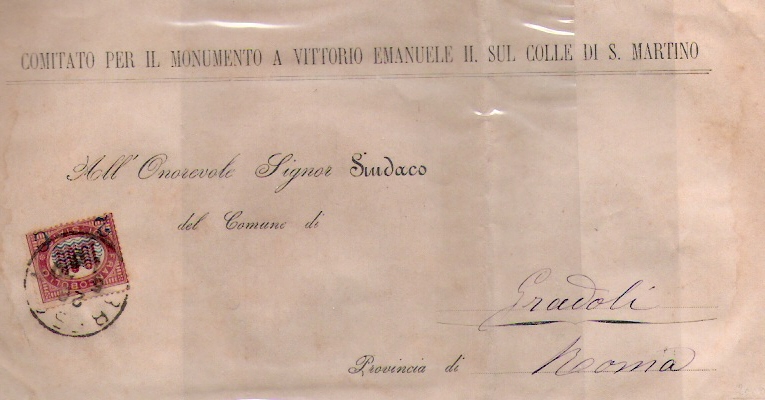 COMITATO PER IL MONUMENTO A VITTORIO EMANUELE II. SUL COLLE DI S. MARTINO
All' Onorevole Signor Sindaco
del Comune di
Gradoli
Provincia di Roma